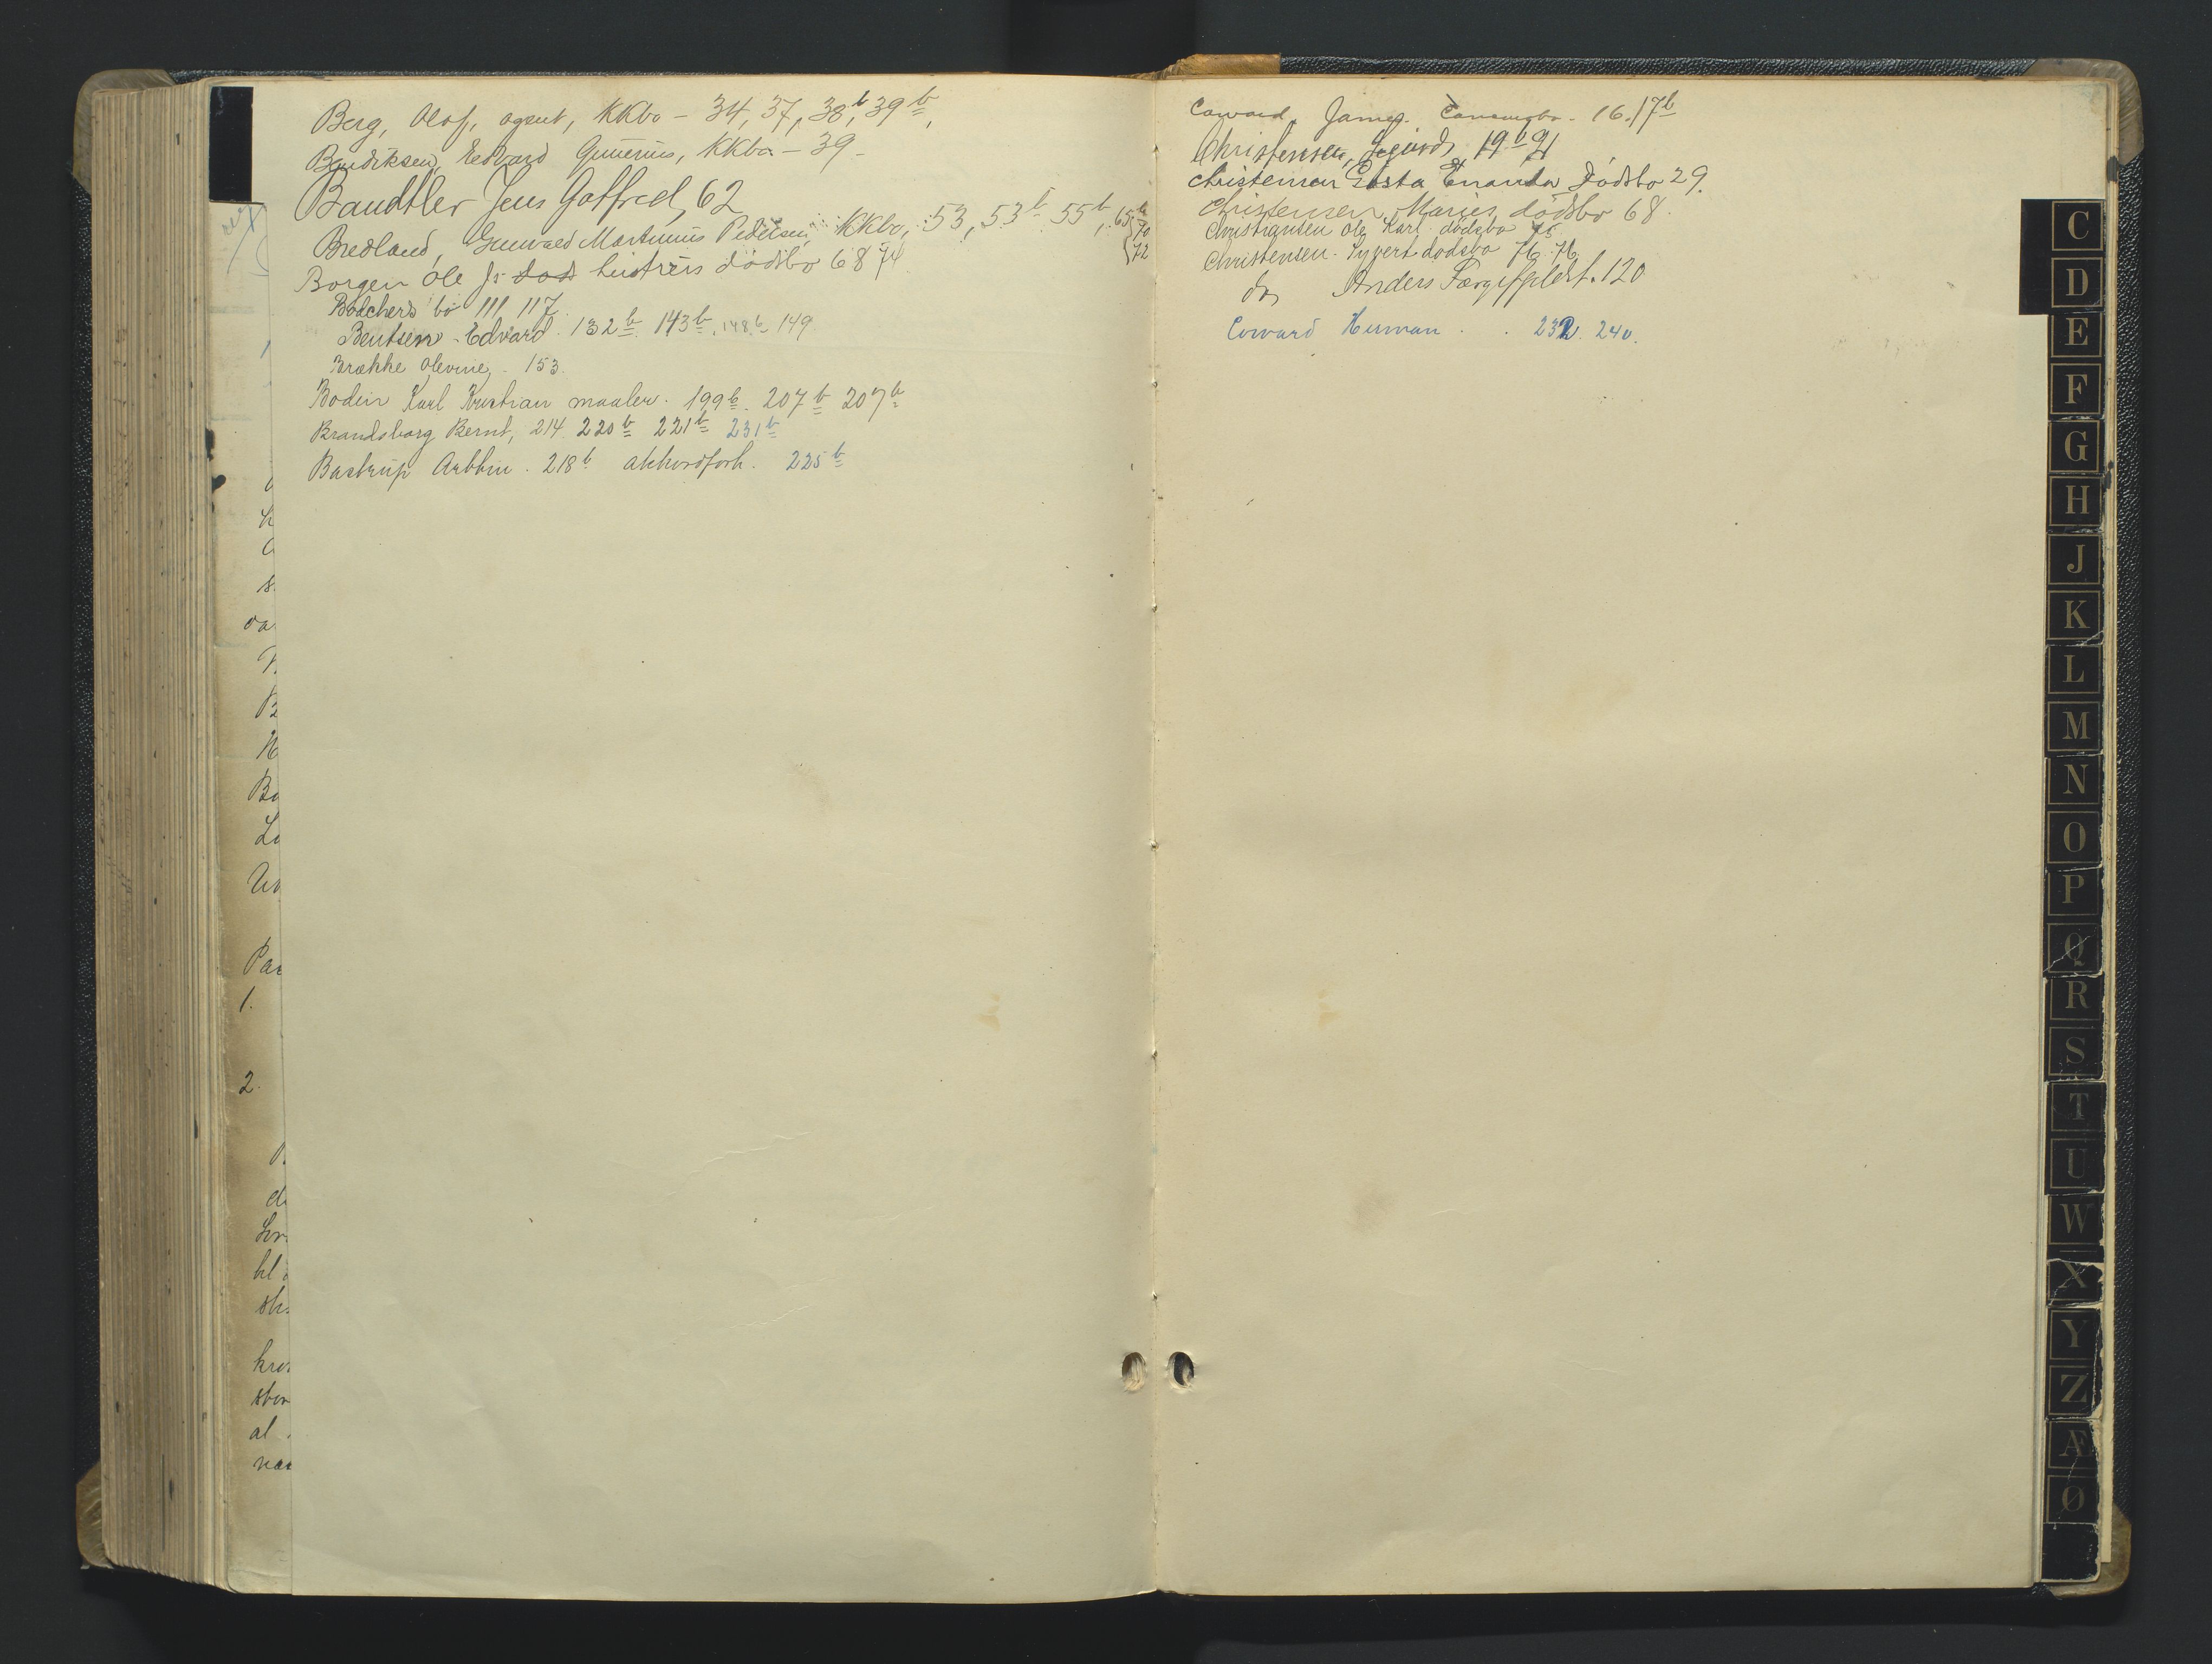 Berg, Olaf, agent, KKbo - 34, 37, 38b, 39b,
Bendiksen, Edvard Gunerius, KKbo - 39 -
Bandtler Jens Gotfred, 62
Bredland, Gunvald Martinius Pedersen, KKbo, 53, 53b 55b, 65b 70 72
Borgen Ole Js död hustrus dödsbo 68 74
Bödchers bo 111 117
Bentsen - Edvard. 132b 143b. 148b 149
Brække Olevine, - 153
Bodin Karl Kristian maaler. 199b. 207b 207b
Brandsborg Bernt, 214 220b 221b 231b
Bastrup Arbhin. 218b akkordforh. 225b
Coward, James. 16. 17b
Christensen, Sigurd, 19b 21
Christensen Gusta Enanda Dödsbo 29.
Christensen Maries dödsbo 68.
Christiansen Ole Karl dödsbo 75
Christensen. Syvert dødsbo 76. 76
do Anders 120
Coward Herman . . 232. 240.
C
D
E
F
G
H
J
K
L
M
N
O
P
Q
R
S
T
U
W
X
Y
Z
Æ
Ø
Par
1.
2.